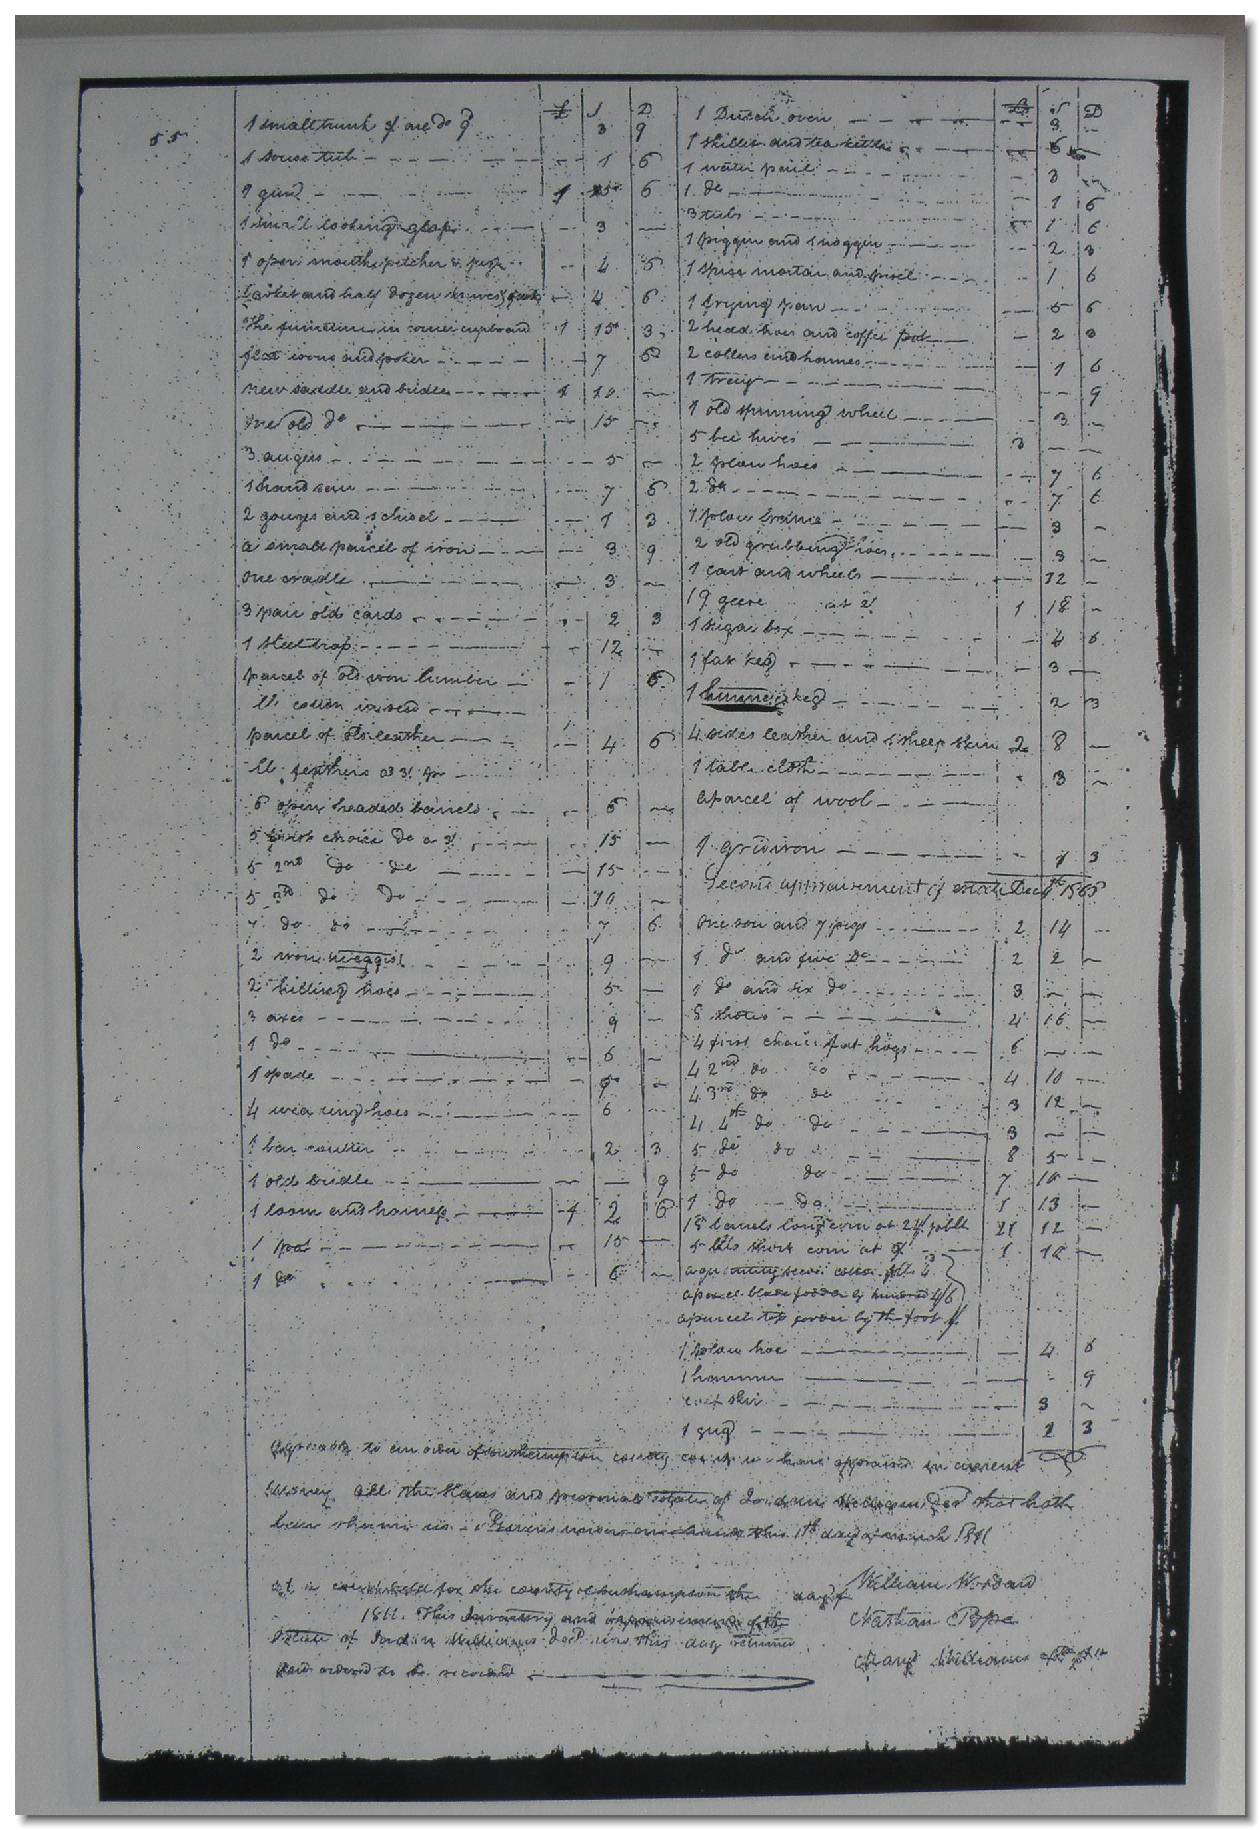 55
£ S D
1 small trunk 3 9
1 souse tub 1 6
1 gun 1 15 6
1 small looking glass 3
1 open mouth pitcher & jugs 4 6
half dozen knives 4 6
The furniture in corner cupboard 1 15 3
flat irons and poker 7 6
new saddle and bridle 1 10
one old do 15
3 augers 5
1 hand saw 7 6
2 gouges and chisel 1 3
a small parcel of iron 3 9
one cradle 3
3 pair old cards 2 3
1 steel trap 12
parcel of old iron lumber 1 6
lb cotton in seed
parcel of old leather 4 6
lb feathers at 3/ pr
6 open headed barrels 6
5 first choice do a 3/ 15
5 2nd do do 15
5 3rd do do 10
do do 7 6
2 iron wedges 9
2 hilling hoes 5
3 axes 9
1 do 6
1 spade
4 weeding hoes 6
1 bar coulter 2 3
1 old bridle 9
1 loom and harness 2 6
1 pot 15
1 do 6
£ S D
1 Dutch oven 9
1 skillet and tea kettle 6
1 water pail 3
1 do 1 6
3 tubs 1 6
1 piggin and noggin 2 3
1 spice mortar and pestel 1 6
1 frying pan 5 6
2 head hoes and coffee pot 2 3
2 collers and hames 1 6
1 tray 9
1 old spinning wheel 3
5 bee hives 3
2 plow hoes 7 6
2 do 7 6
1 plow 3
2 old grubbing hoes 3
1 cart and wheels 12
19 geese at 2/ 1 18
1 sugar box 4 6
1 fat keg 3
1 keg 2 3
4 sides leather and 1 sheep skin 2 8
1 table cloth 3
a parcel of wool
1 gridiron 1 3
Second appraisement of estate Dec
one sow and 7 pigs 2 14
1 do and five do 2 2
1 do and six do 3
8 shotes 4 16
4 first choice fat hogs 6
4 2nd do do 4 10
4 3rd do do 3 12
4 4th do do 3
5 do do 8 5
5 do do 7 10
1 do do 1 13
18 barrels long corn at 24/ pr bbl 21 12
5 bbls short corn at 6/ 1 10
a parcel blade fodder by hundred 4/6
a parcel top fodder by the foot
1 plow hoe 4 6
1 hammer 9
calf skin 3
1 jug 2 3
Agreeable to an order of Southampton county court we have appraised in current
money all the slaves and personal estate of Jordan Williams decd that hath
been shown us. Given under our hands this 1th day of march 1811
William Woodard
Nathan Pope
Williams
At a court held for the county of Southampton the day of
1811. This Inventory and appraisement of the
Estate of Jordan Williams decd was this day returned
and ordered to be recorded